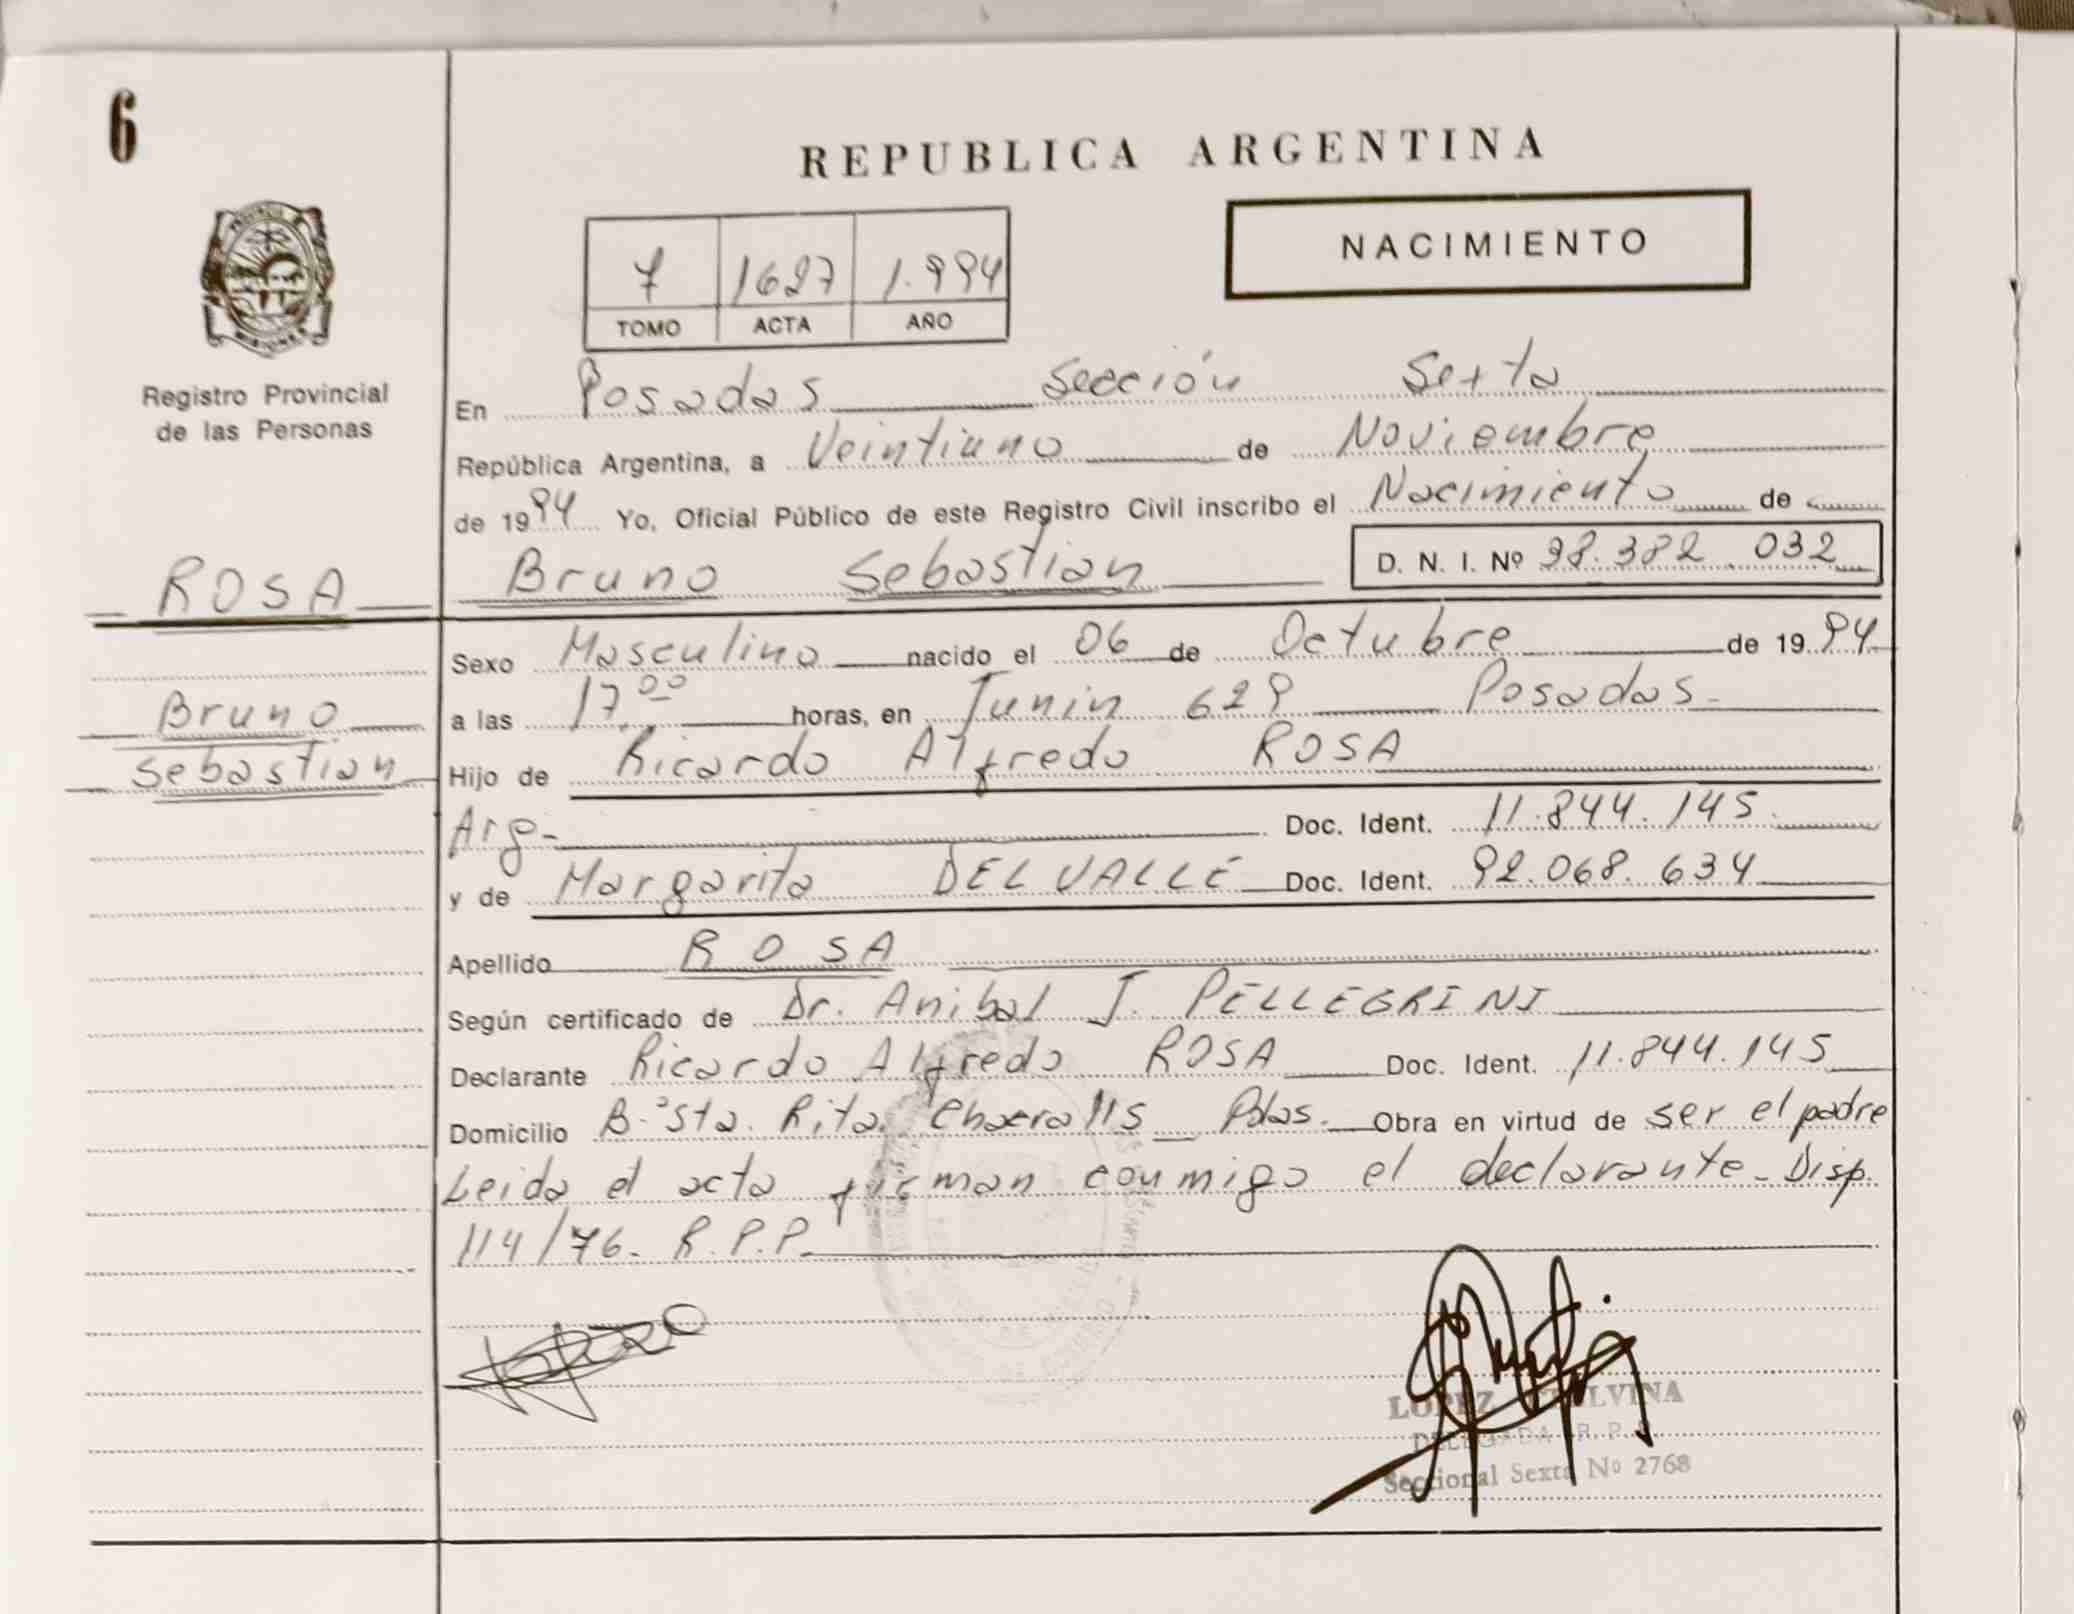 6
REPUBLICA ARGENTINA
NACIMIENTO
7 1627 1.994
TOMO ACTA AÑO
MISIONES
Registro Provincial
de las Personas
En Posadas Sección Sexta
República Argentina, a Veintiuno de Noviembre
de 1994 Yo, Oficial Público de este Registro Civil inscribo el Nacimiento de
ROSA Bruno Sebastian D. N. I. Nº 38.382.032
Sexo Masculino nacido el 06 de Octubre de 1994
Bruno
Sebastian
a las 17 00 horas, en Junin 629 Posadas.
Hijo de Ricardo Alfredo ROSA
Arg- Doc. Ident. 11.844.145
y de Margarita DEL VALLE Doc. Ident. 92.068.634
Apellido ROSA
Según certificado de Dr. Anibal J. PELLEGRINI
Declarante Ricardo Alfredo ROSA Doc. Ident. 11.844.145
Domicilio B.º Sta. Rita. 115 Pdas. Obra en virtud de ser el padre
Leida el acta firman conmigo el declarante- Disp.
114/76- R.P.P.
LOPEZ
DELEGADA R. P.
Seccional Sexta Nº 2768